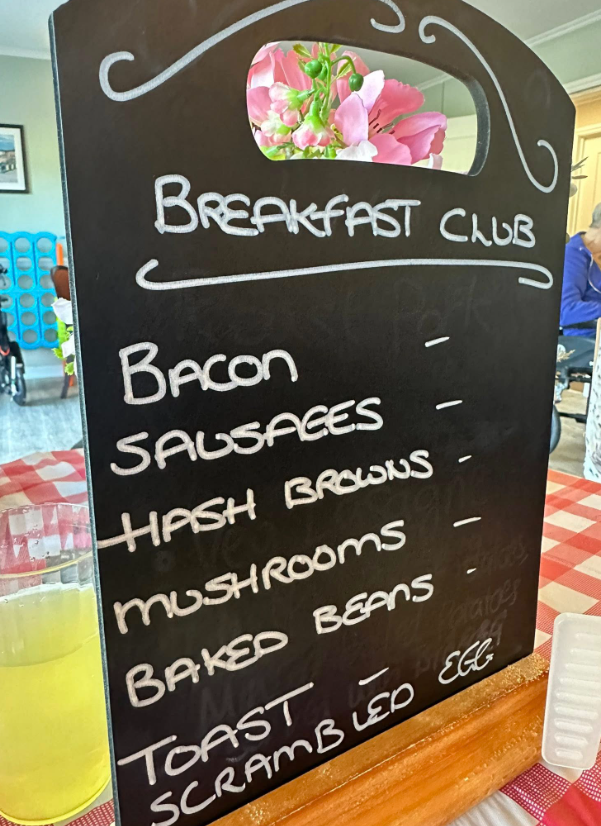 BREAKFAST CLUB
BACON -
SAUSAGES -
HASH BROWNS -
MUSHROOMS -
BAKED BEANS -
TOAST -
SCRAMBLED EGG